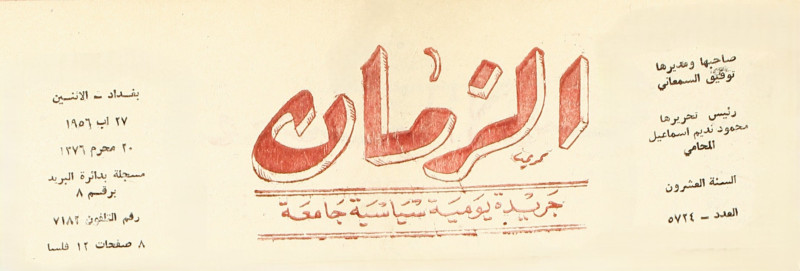 صاحبها ومديرها
توفيق السمعاني
رئيس تحريرها
محمود نديم اسماعيل
المحامي
السنة العشرون
العدد – ٥٧٢٤
الزمان
جريدة يومية سياسية جامعة
بغداد – الاثنين
٢٧ اب ١٩٥٦
٢٠ محرم ١٣٧٦
مسجلة بدائرة البريد
برقم ٨
رقم التلفون ٧١٨٢
٨ صفحات ١٢ فلسا